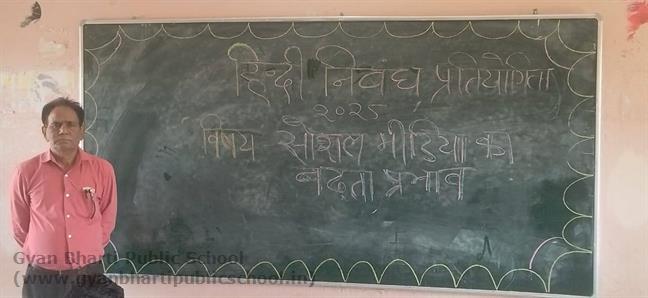 हिन्दी निबंध प्रतियोगिता
२०२५
विषय सोशल मीडिया का
बढ़ता प्रभाव
Gyan Bharti Public School
(www.gyanbhartipublicschool.in)